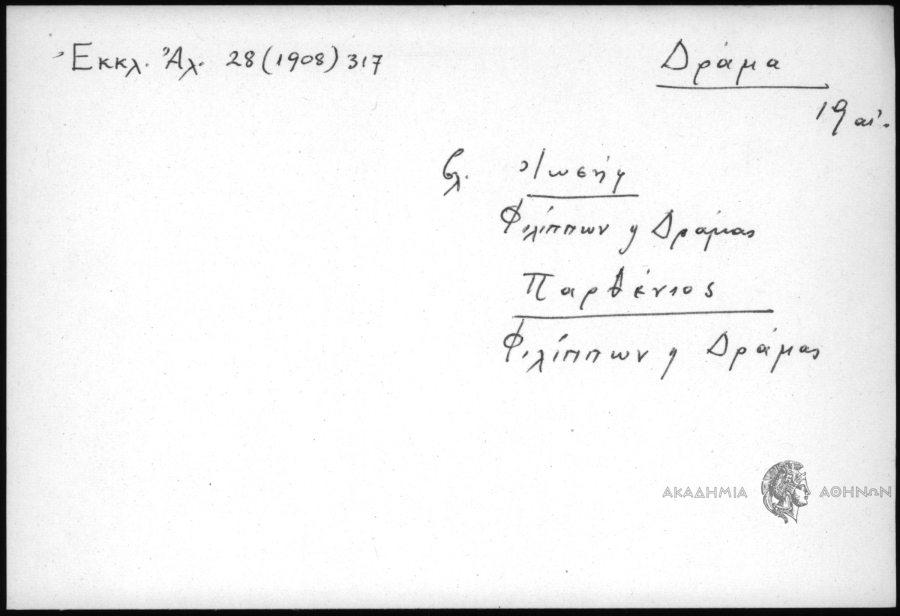 Ἐκκλ. Ἀλ. 28 (1908) 317
Δράμα
19 αἰ.
βλ. Ἰωσήφ
Φιλίππων ἢ Δράμας
Παρθένιος
Φιλίππων ἢ Δράμας
ΑΚΑΔΗΜΙΑ ΑΘΗΝΩΝ